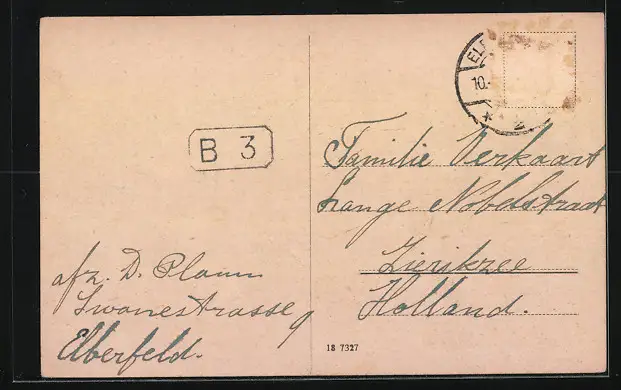 ELB
10.
B 3
Familie Verkaart
Lange Nobelstraat
Zierikzee
Holland.
afz. D. Plaum
Swanestrasse 9
Elberfeld.
18 7327